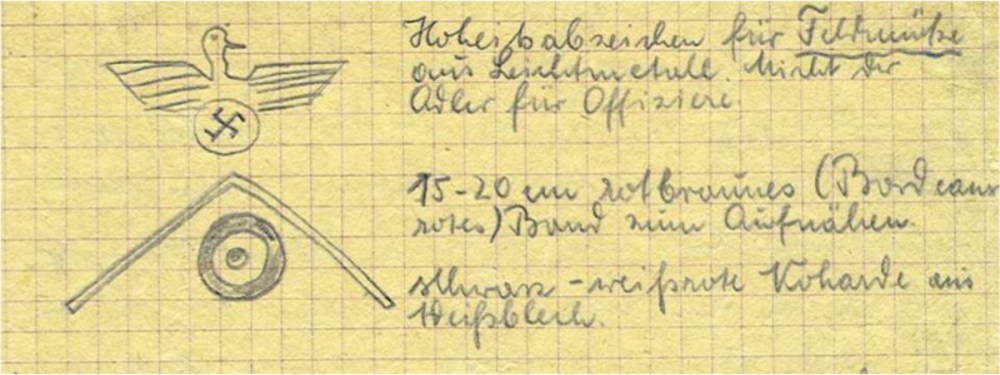 Hoheitsabzeichen für Feldmütze
aus Leichtmetall. Nicht der
Adler für Offiziere.
15-20 cm rotbraunes (Bordeaux
rotes) Band zum Aufnähen.
schwarz-weißrote Kokarde aus
Weißblech.